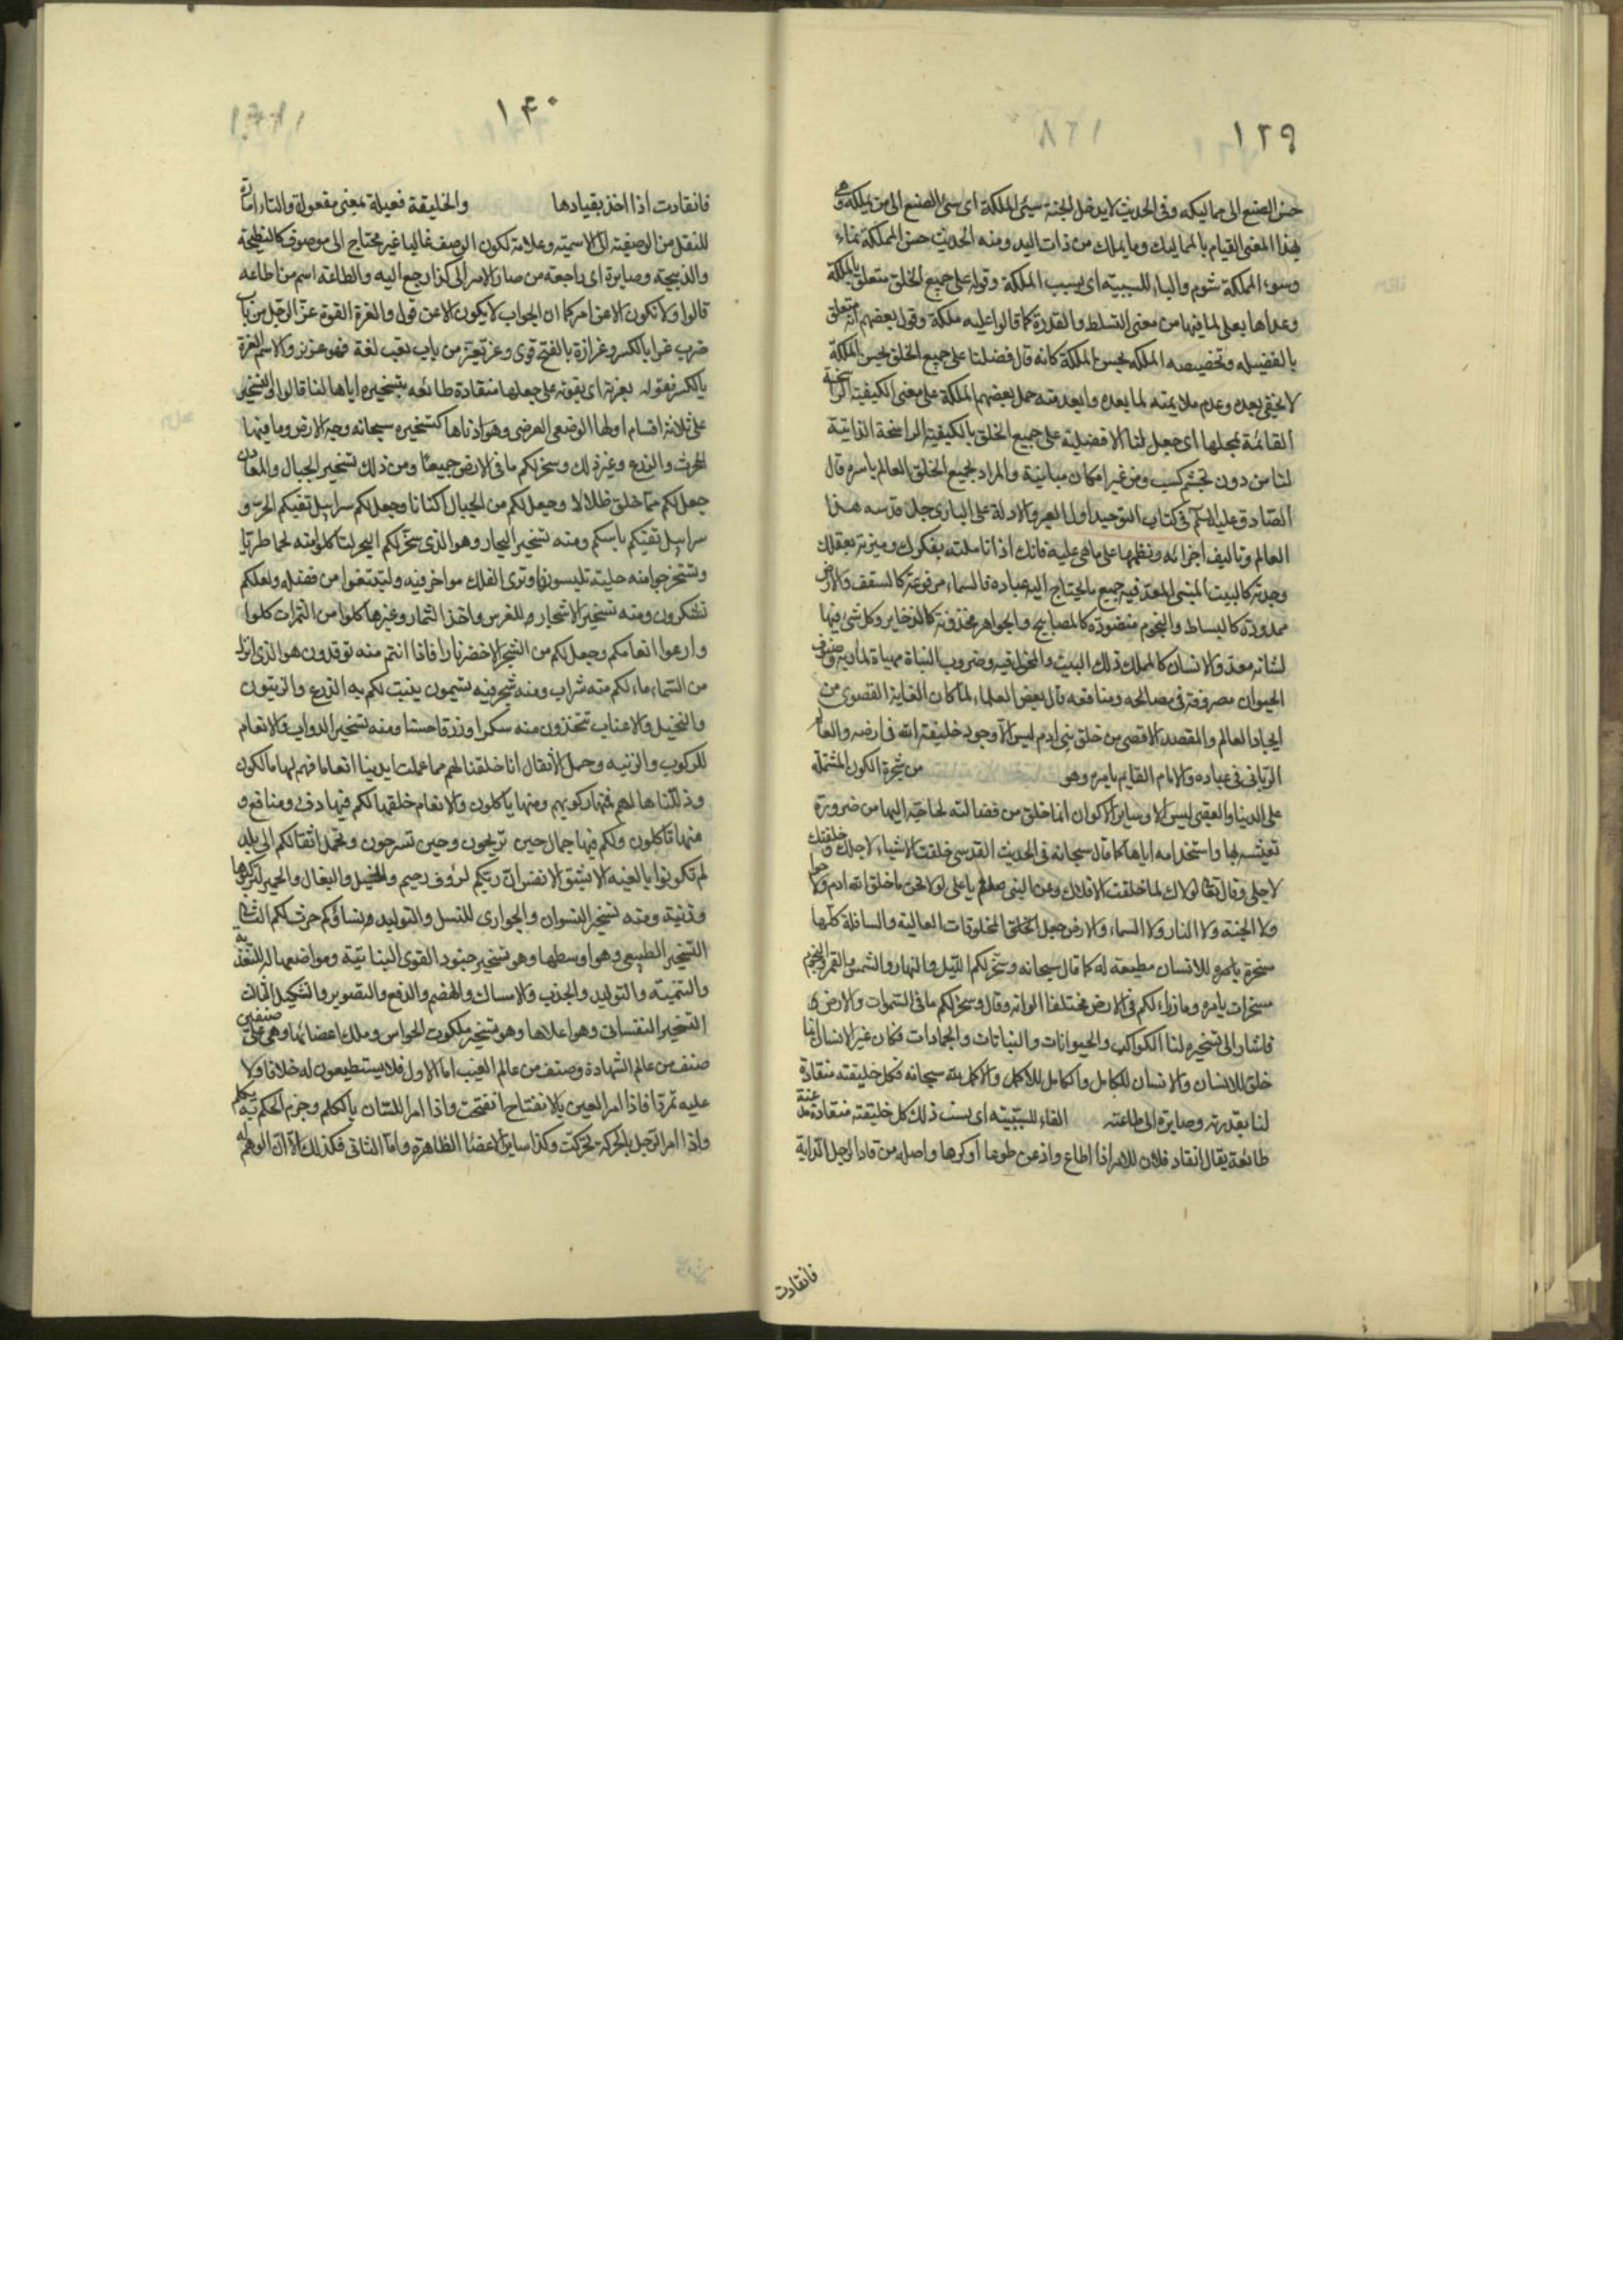 ١٣٩
حسن الصنع الى مماليكه وفى الحديث لا يدخل الجنة سيئ الملكة اى سيئ الصنع الى من يملكه وهى
بهذا المعنى القيام بالمماليك وما يملك من ذات اليد ومنه الحديث حسن الملكة نماء
وسوء الملكة شوم والباء للسببية اى بسبب الملكة وقوله على جميع الخلق متعلق بالملكة
وعداها بعلى لما فيها من معنى التسلط والقدرة كما قالوا عليه ملكة وقول بعضهم انه متعلق
بالفضيلة وتخصيصه الملكه بحسن الملكة كانه قال فضلنا على جميع الخلق بحسن الملكة
لا يخفى بعده وعدم ملايمته لما بعده وابعد منه حمل بعضهم الملكة على معنى الكيفية الراسخة
القائمة بمحلها اى جعل لنا الافضلية على جميع الخلق بالكيفية الراسخة الذاتية
لنا من دون تجشم كسب ومن غير امكان مباينة والمراد بجميع الخلق العالم باسره قال
الصادق عليه السلم فى كتاب التوحيد اول العبر والادلة على البارى جل قدسه هذا
العالم وتاليف اجزائه ونظمها على ما هى عليه فانك اذا تاملته بفكرك وميزته بعقلك
وجدته كالبيت المبنى المعد فيه جميع ما يحتاج اليه عباده فالسماء مرفوعة كالسقف والارض
ممدودة كالبساط والنجوم منضودة كالمصابيح والجواهر مخزونة كالذخاير وكل شئ فيها
لشانه معد والانسان كالمملك ذلك البيت والمخول فيه وضروب النبات مهياة لمآربه وصنوف
الحيوان مصروفة فى مصالحه ومنافعه قال بعض العلماء لما كان الغاية القصوى من
ايجاد العالم والمقصد الاقصى من خلق بنى ادم ليس الا وجود خليفة الله فى ارضه والعالم
الربانى فى عباده والامام القايم بامره وهو من شجرة الكون المشتملة
على الدنيا والعقبى ليس الا وساير الاكوان انما خلق من فضالته لحاجته اليها من ضرورة
تعيشه بها واستخدامه اياها كما قال سبحانه فى الحديث القدسى خلقت الاشياء لاجلك وخلقتك
لاجلى وقال تعالى لولاك لما خلقت الافلاك وعن النبى صلعم يا على لولا نحن ما خلق الله ادم ولا حوا
ولا الجنة ولا النار ولا السماء ولا الارض جعل الخلق المخلوقات العالية والسافلة كلها
مسخرة بامره للانسان مطيعة له كما قال سبحانه وسخر لكم الليل والنهار والشمس والقمر والنجوم
مسخرات بامره وما ذراء لكم فى الارض مختلفا الوانه وقال وسخر لكم ما فى السموات والارض
فاشار الى تسخيره لنا الكواكب والحيوانات والنباتات والجمادات فكان غير الانسان انما
خلق للانسان والانسان للكامل والكامل للاكمل والاكمل لله سبحانه فكل خليقته منقادة
لنا بقدرته وصايرة الى طاعته الفاء للسببية اى بسبب ذلك كل خليقته منقادة
طائعة يقال انقاد فلان للامر اذا اطاع واذعن طوعا او كرها واصله من قاد الرجل الدابة
فانقادت
١٤٠
فانقادت اذا اخذ بقيادها والخليقة فعيلة بمعنى مفعولة والتاء امارة
للنقل من الوصفية الى الاسمية وعلامة لكون الوصف غالبا غير محتاج الى موصوف كالنطيحة
والذبيحة وصايرة اى راجعة من صار الامر الى كذا رجع اليه والطاعة اسم من اطاعه
قالوا ولا تكون الا عن امر كما ان الجواب لا يكون الا عن قول والعزة القوة عز الرجل من باب
ضرب عزا بالكسر وعزازة بالفتح قوى وعز تعز من باب تعب لغة فهو عزيز والاسم العزة
بالكسر فقوله بعزته اى بقوته على جعلها منقادة طائعة بتسخيره اياها لنا قالوا التسخير
على ثلاثة اقسام اولها الوضعى العرضى وهو ادناها كتسخيره سبحانه وجه الارض وما فيها
للحرث والزرع وغير ذلك وسخر لكم ما فى الارض جميعا ومن ذلك تسخير الجبال والمعادن
جعل لكم مما خلق ظلالا وجعل لكم من الجبال اكنانا وجعل لكم سرابيل تقيكم الحر و
سرابيل تقيكم باسكم ومنه تسخير البحار وهو الذى سخر لكم البحر لتاكلوا منه لحما طريا
وتستخرجوا منه حلية تلبسونها وترى الفلك مواخر فيه ولتبتغوا من فضله ولعلكم
تشكرون ومنه تسخير الاشجار للغرس واخذ الثمار وغيرها كلوا من الثمرات كلوا
وارعوا انعامكم وجعل لكم من الشجر الاخضر نارا فاذا انتم منه توقدون هو الذى انزل
من السماء ماء لكم منه شراب ومنه شجر فيه تسيمون ينبت لكم به الزرع والزيتون
والنخيل والاعناب تتخذون منه سكرا ورزقا حسنا ومنه تسخير الدواب والانعام
للركوب والزينة وحمل الاثقال انا خلقنا لهم مما عملت ايدينا انعاما فهم لها مالكون
وذللناها لهم فمنها ركوبهم ومنها ياكلون والانعام خلقها لكم فيها دفء ومنافع و
منها تاكلون ولكم فيها جمال حين تريحون وحين تسرحون وتحمل اثقالكم الى بلد
لم تكونوا بالغيه الا بشق الانفس ان ربكم لرؤف رحيم والخيل والبغال والحمير لتركبوها
وزينة ومنه تسخير النسوان والجوارى للنسل والتوليد ونساؤكم حرث لكم الثانى
التسخير الطبيعى وهو اوسطها وهو تسخير جنود القوى النباتية ومواضعها له للتغذية
والتنمية والتوليد والجذب والامساك والهضم والدفع والتصوير والتشكيل الثالث
التسخير النفسانى وهو اعلاها وهو تسخير ملكوت الحواس وملك اعضائها وهى على صنفين
صنف من عالم الشهادة وصنف من عالم الغيب اما الاول فلا يستطيعون له خلافا ولا
عليه تمردا فاذا امر العين بالانفتاح انفتحت واذا امر اللسان بالتكلم وجزم الحكم به تكلم
واذا امر الرجل بالحركة تحركت وكذا ساير الاعضا الظاهرة واما الثانى فكذلك الا ان الوهم